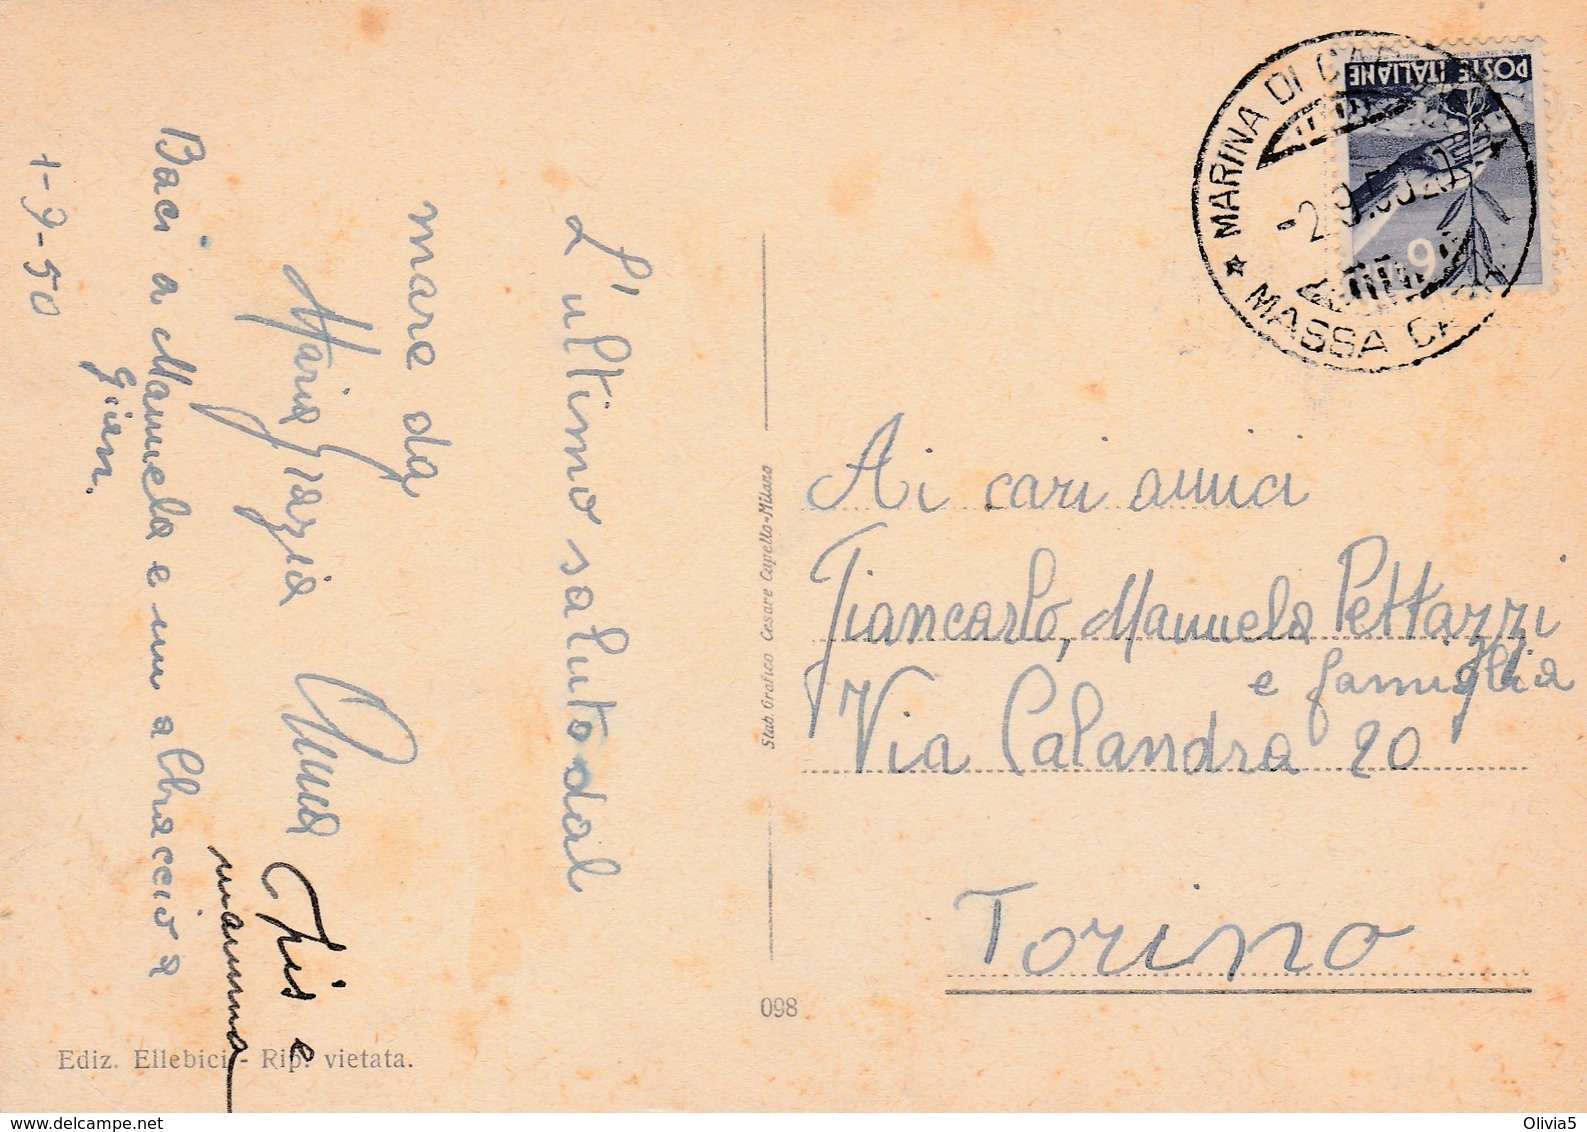 L'ultimo saluto dal
mare da
Maria Grazia Anna
Iris e
mamma
Baci a Manuela e un abbraccio a
Gian.
1-9-50
Ediz. Ellebici - Rip. vietata.
098
Stab. Grafico Cesare Capello-Milano
POSTE ITALIANE
6
MARINA DI CARRARA
-2.9.50.20
MASSA CARR
Ai cari amici
Giancarlo, Manuela Pettazzi
e famiglia
Via Calandra 20
Torino
delcampe.net
Olivia5